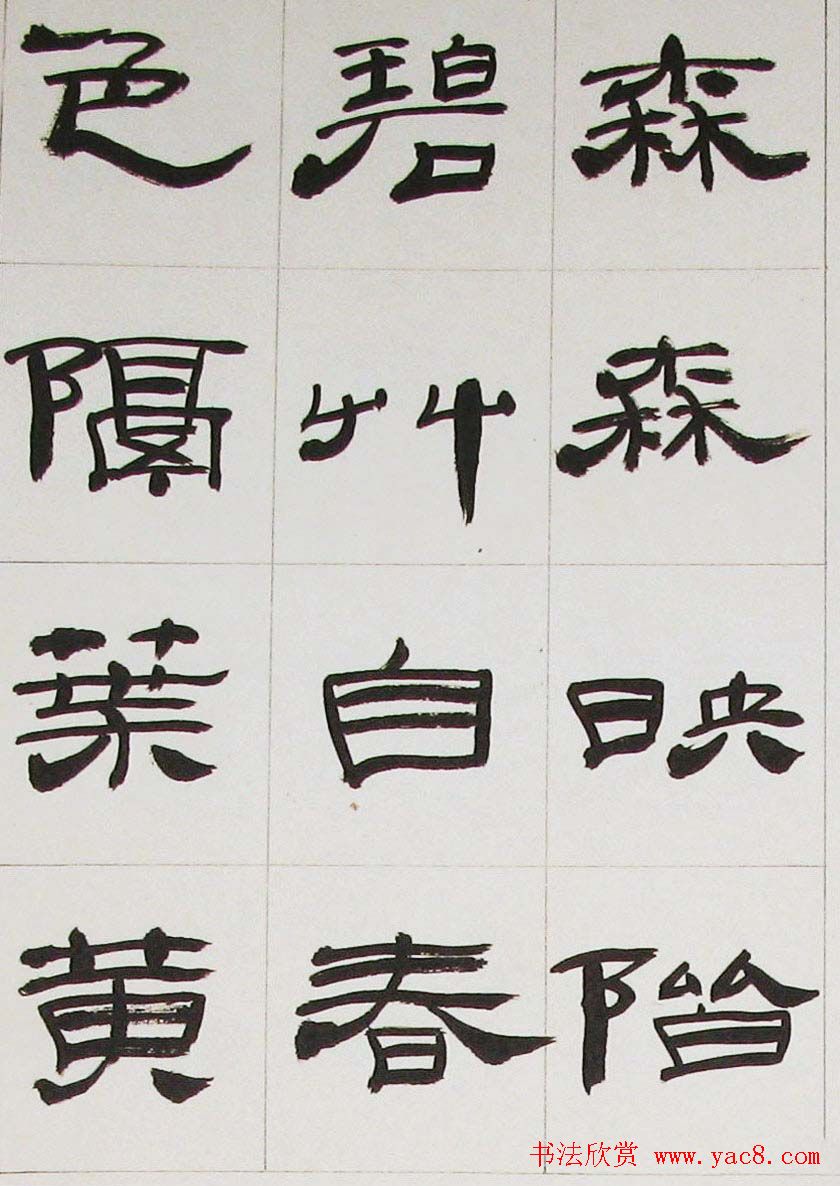 森森映階
碧艸自春
色隔葉黄
书法欣赏 www.yac8.com